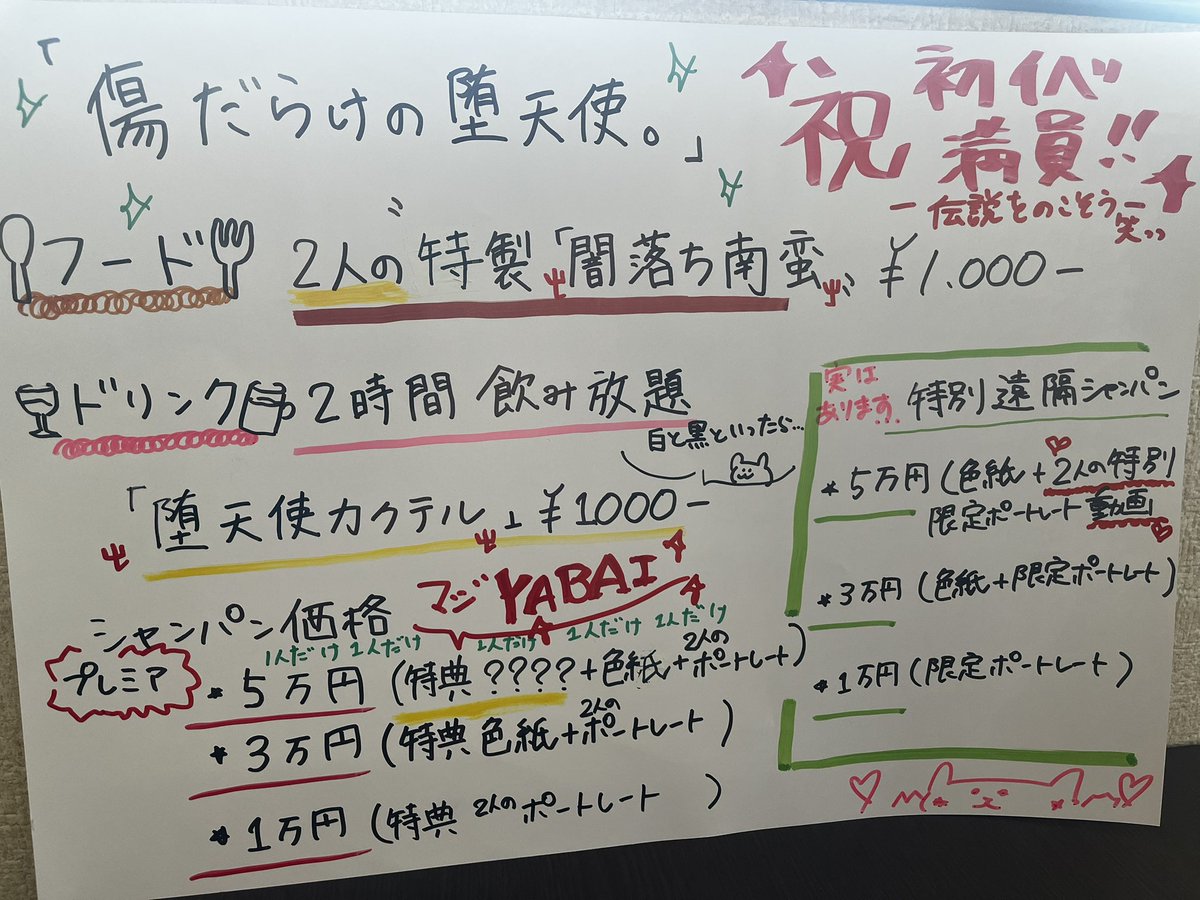 「傷だらけの堕天使。」
祝 初イベ
満員!!
ー伝説をのこそうー
笑っっ
フード 2人の特製「闇落ち南蛮」 ¥1.000-
ドリンク 2時間 飲み放題
白と黒といったら...
「堕天使カクテル」¥1000-
マジYABAI
シャンパン価格
1人だけ 1人だけ 1人だけ 1人だけ 1人だけ
プレミア
*5万円(特典????+色紙+2人のポートレート)
*3万円(特典 色紙+2人のポートレート)
*1万円(特典 2人のポートレート )
実は
あります...
特別遠隔シャンパン
*5万円(色紙+2人の特別
限定ポートレート動画
*3万円(色紙+限定ポートレート)
*1万円(限定ポートレート)